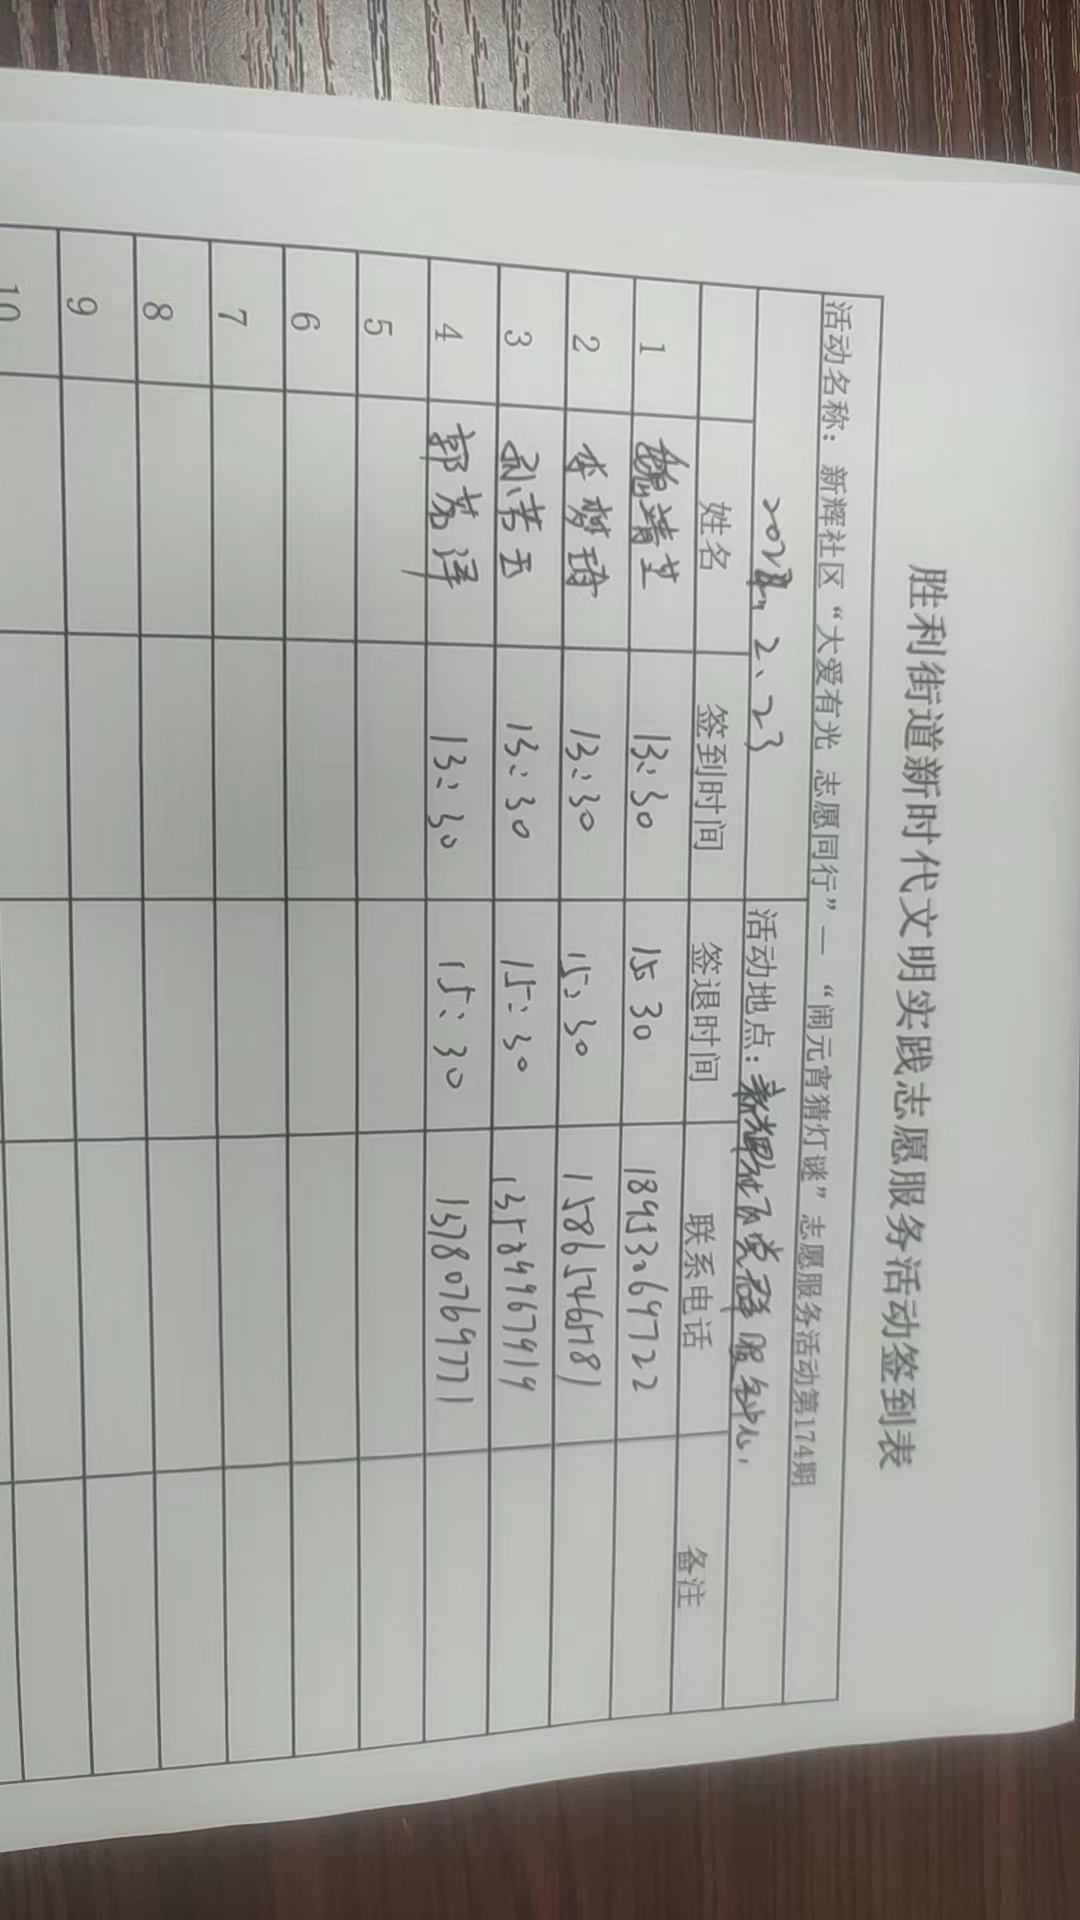 胜利街道新时代文明实践志愿服务活动签到表
活动名称：新辉社区“大爱有光 志愿同行”—“闹元宵猜灯谜”志愿服务活动第174期
2.23 活动地点：新辉社区党群服务中心
姓名 签到时间 签退时间 联系电话 备注
1 魏靖芝 13:30 15 30 18953069722
2 李梦琦 13:30 15:30
3 13:30 15:30
4 郭芳泽 13:30 15:30 13780769771
5
6
7
8
9
10